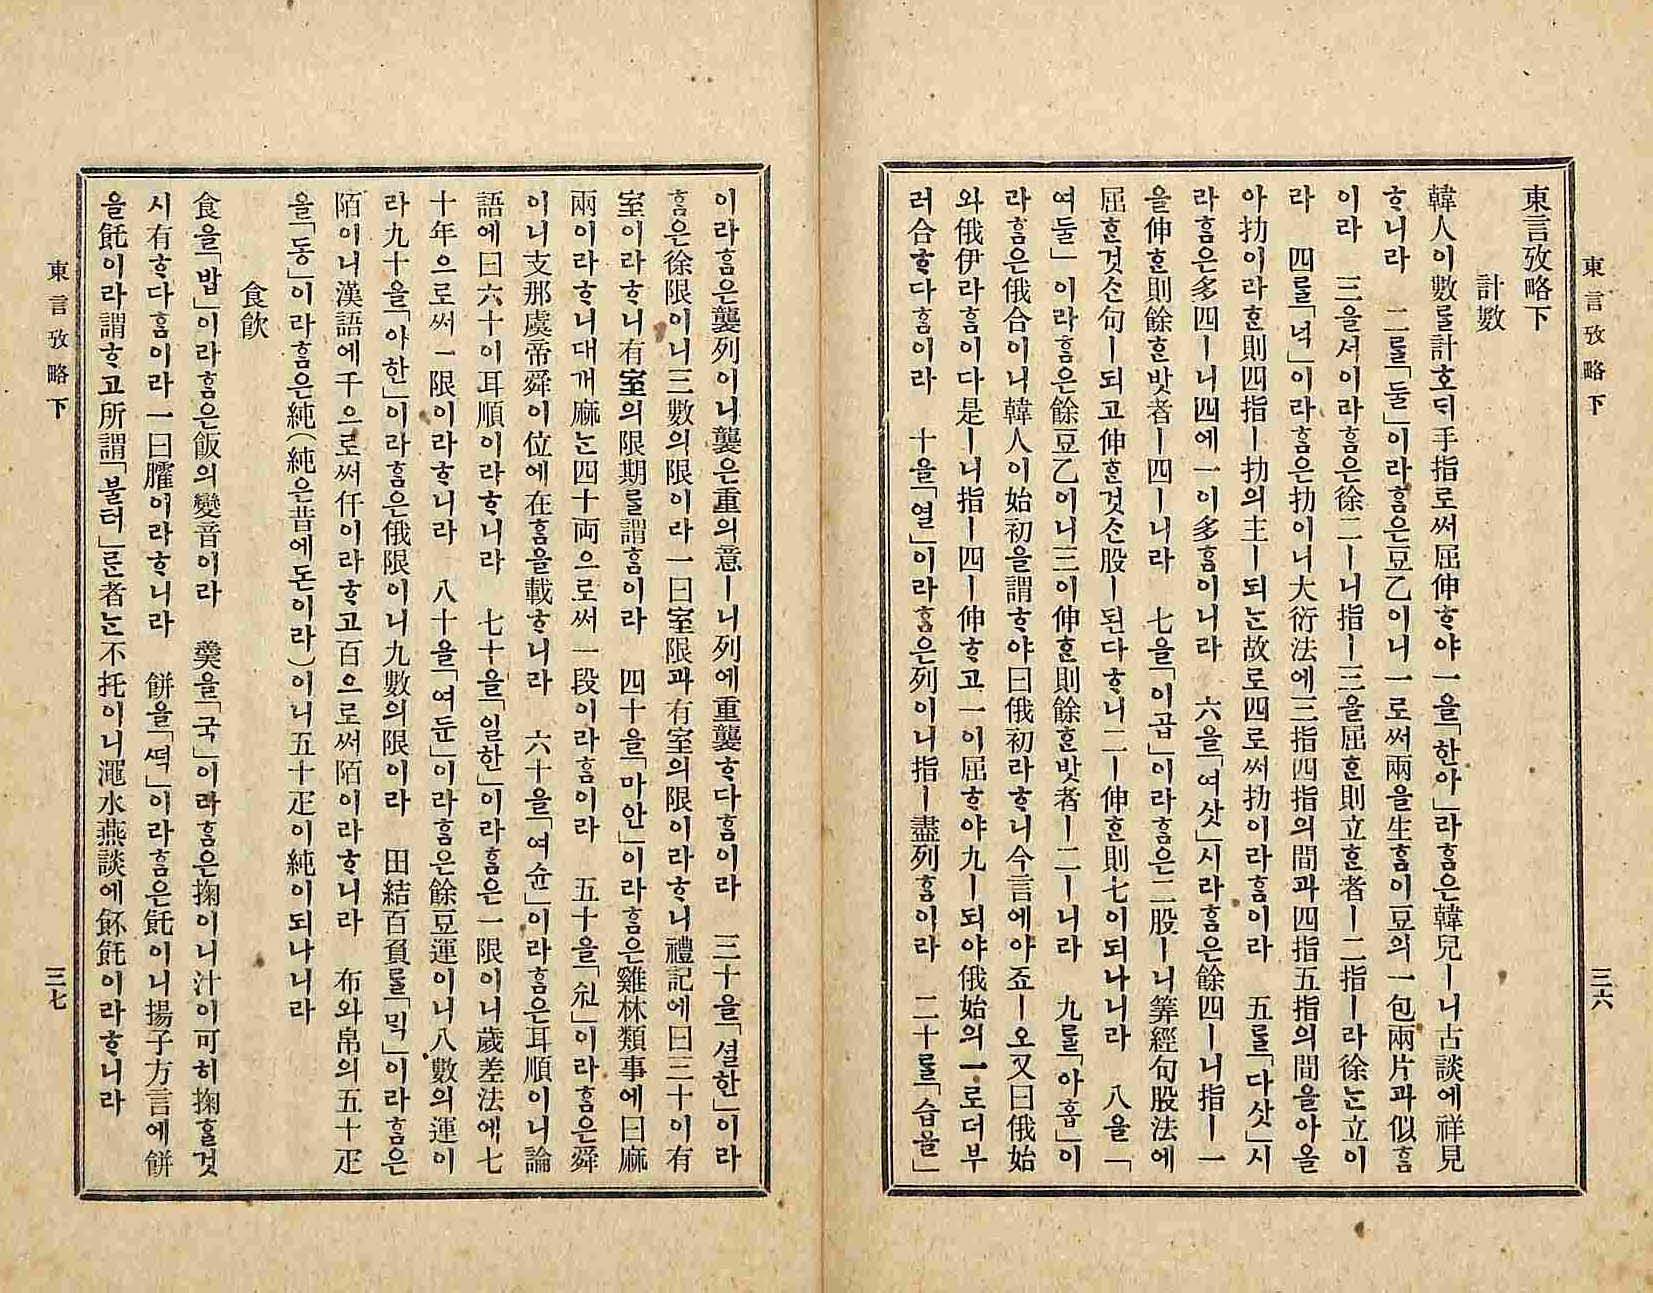 東言攷略下
三六
東言攷略下
計數
韓人이數를計호ᄃᆡ手指로써屈伸ᄒᆞ야一을「한아」라홈은韓兒ㅣ니古談에祥見
ᄒᆞ니라 二를「둘」이라홈은豆乙이니一로써兩을生홈이豆의一包兩片과似홈
이라 三을서이라홈은徐二ㅣ니指ㅣ三을屈ᄒᆞᆫ則立ᄒᆞᆫ者ㅣ二指ㅣ라徐ᄂᆞᆫ立이
라 四를「넉」이라홈은扐이니大衍法에三指四指의間과四指五指의間을아을
아扐이라ᄒᆞᆫ則四指ㅣ扐의主ㅣ되ᄂᆞᆫ故로四로써扐이라홈이라 五를「다삿」시
라홈은多四ㅣ니四에一이多홈이니라 六을「여삿」시라홈은餘四ㅣ니指ㅣ一
을伸ᄒᆞᆫ則餘ᄒᆞᆫ밧者ㅣ四ㅣ니라 七을「이곱」이라홈은二股ㅣ니筭經句股法에
屈ᄒᆞᆫ것슨句ㅣ되고伸ᄒᆞᆫ것슨股ㅣ된다ᄒᆞ니二ㅣ伸ᄒᆞᆫ則七이되나니라 八을「
여둘」이라홈은餘豆乙이니三이伸ᄒᆞᆫ則餘ᄒᆞᆫ밧者ㅣ二ㅣ니라 九를「아홉」이
라홈은俄合이니韓人이始初을謂ᄒᆞ야曰俄初라ᄒᆞ니今言에야죠ㅣ오又曰俄始
와俄伊라홈이다是ㅣ니指ㅣ四ㅣ伸ᄒᆞ고一이屈ᄒᆞ야九ㅣ되야俄始의一로더부
러合ᄒᆞ다홈이라 十을「열」이라홈은列이니指ㅣ盡列홈이라 二十를「습을」
이라홈은襲列이니襲은重의意ㅣ니列에重襲ᄒᆞ다홈이라 三十을「셜한」이라
홈은徐限이니三數의限이라一曰室限과有室의限이라ᄒᆞ니禮記에曰三十이有
室이라ᄒᆞ니有室의限期를謂홈이라 四十을「마안」이라홈은雞林類事에曰麻
兩이라ᄒᆞ니대개麻ᄂᆞᆫ四十両으로써一段이라홈이라 五十을「쉰」이라홈은舜
이니支那虞帝舜이位에在홈을載ᄒᆞ니라 六十을「여슌」이라홈은耳順이니論
語에曰六十이耳順이라ᄒᆞ니라 七十을「일한」이라홈은一限이니歲差法에七
十年으로써一限이라ᄒᆞ니라 八十을「여둔」이라홈은餘豆運이니八數의運이
라九十을「아한」이라홈은俄限이니九數의限이라 田結百負를「먹」이라홈은
陌이니漢語에千으로써仟이라ᄒᆞ고百으로써陌이라ᄒᆞ니라 布와帛의五十疋
을「동」이라홈은純(純은昔에돈이라)이니五十疋이純이되나니라
食飮
食을「밥」이라홈은飯의變音이라 羹을「국」이라홈은掬이니汁이可히掬ᄒᆞᆯ것
시有ᄒᆞ다홈이라一曰臛이라ᄒᆞ니라 餅을「ᄯᅥᆨ」이라홈은飥이니揚子方言에餅
을飥이라謂ᄒᆞ고所謂「불터」룬者ᄂᆞᆫ不托이니澠水燕談에䬪飥이라ᄒᆞ니라
東言攷略下
三七